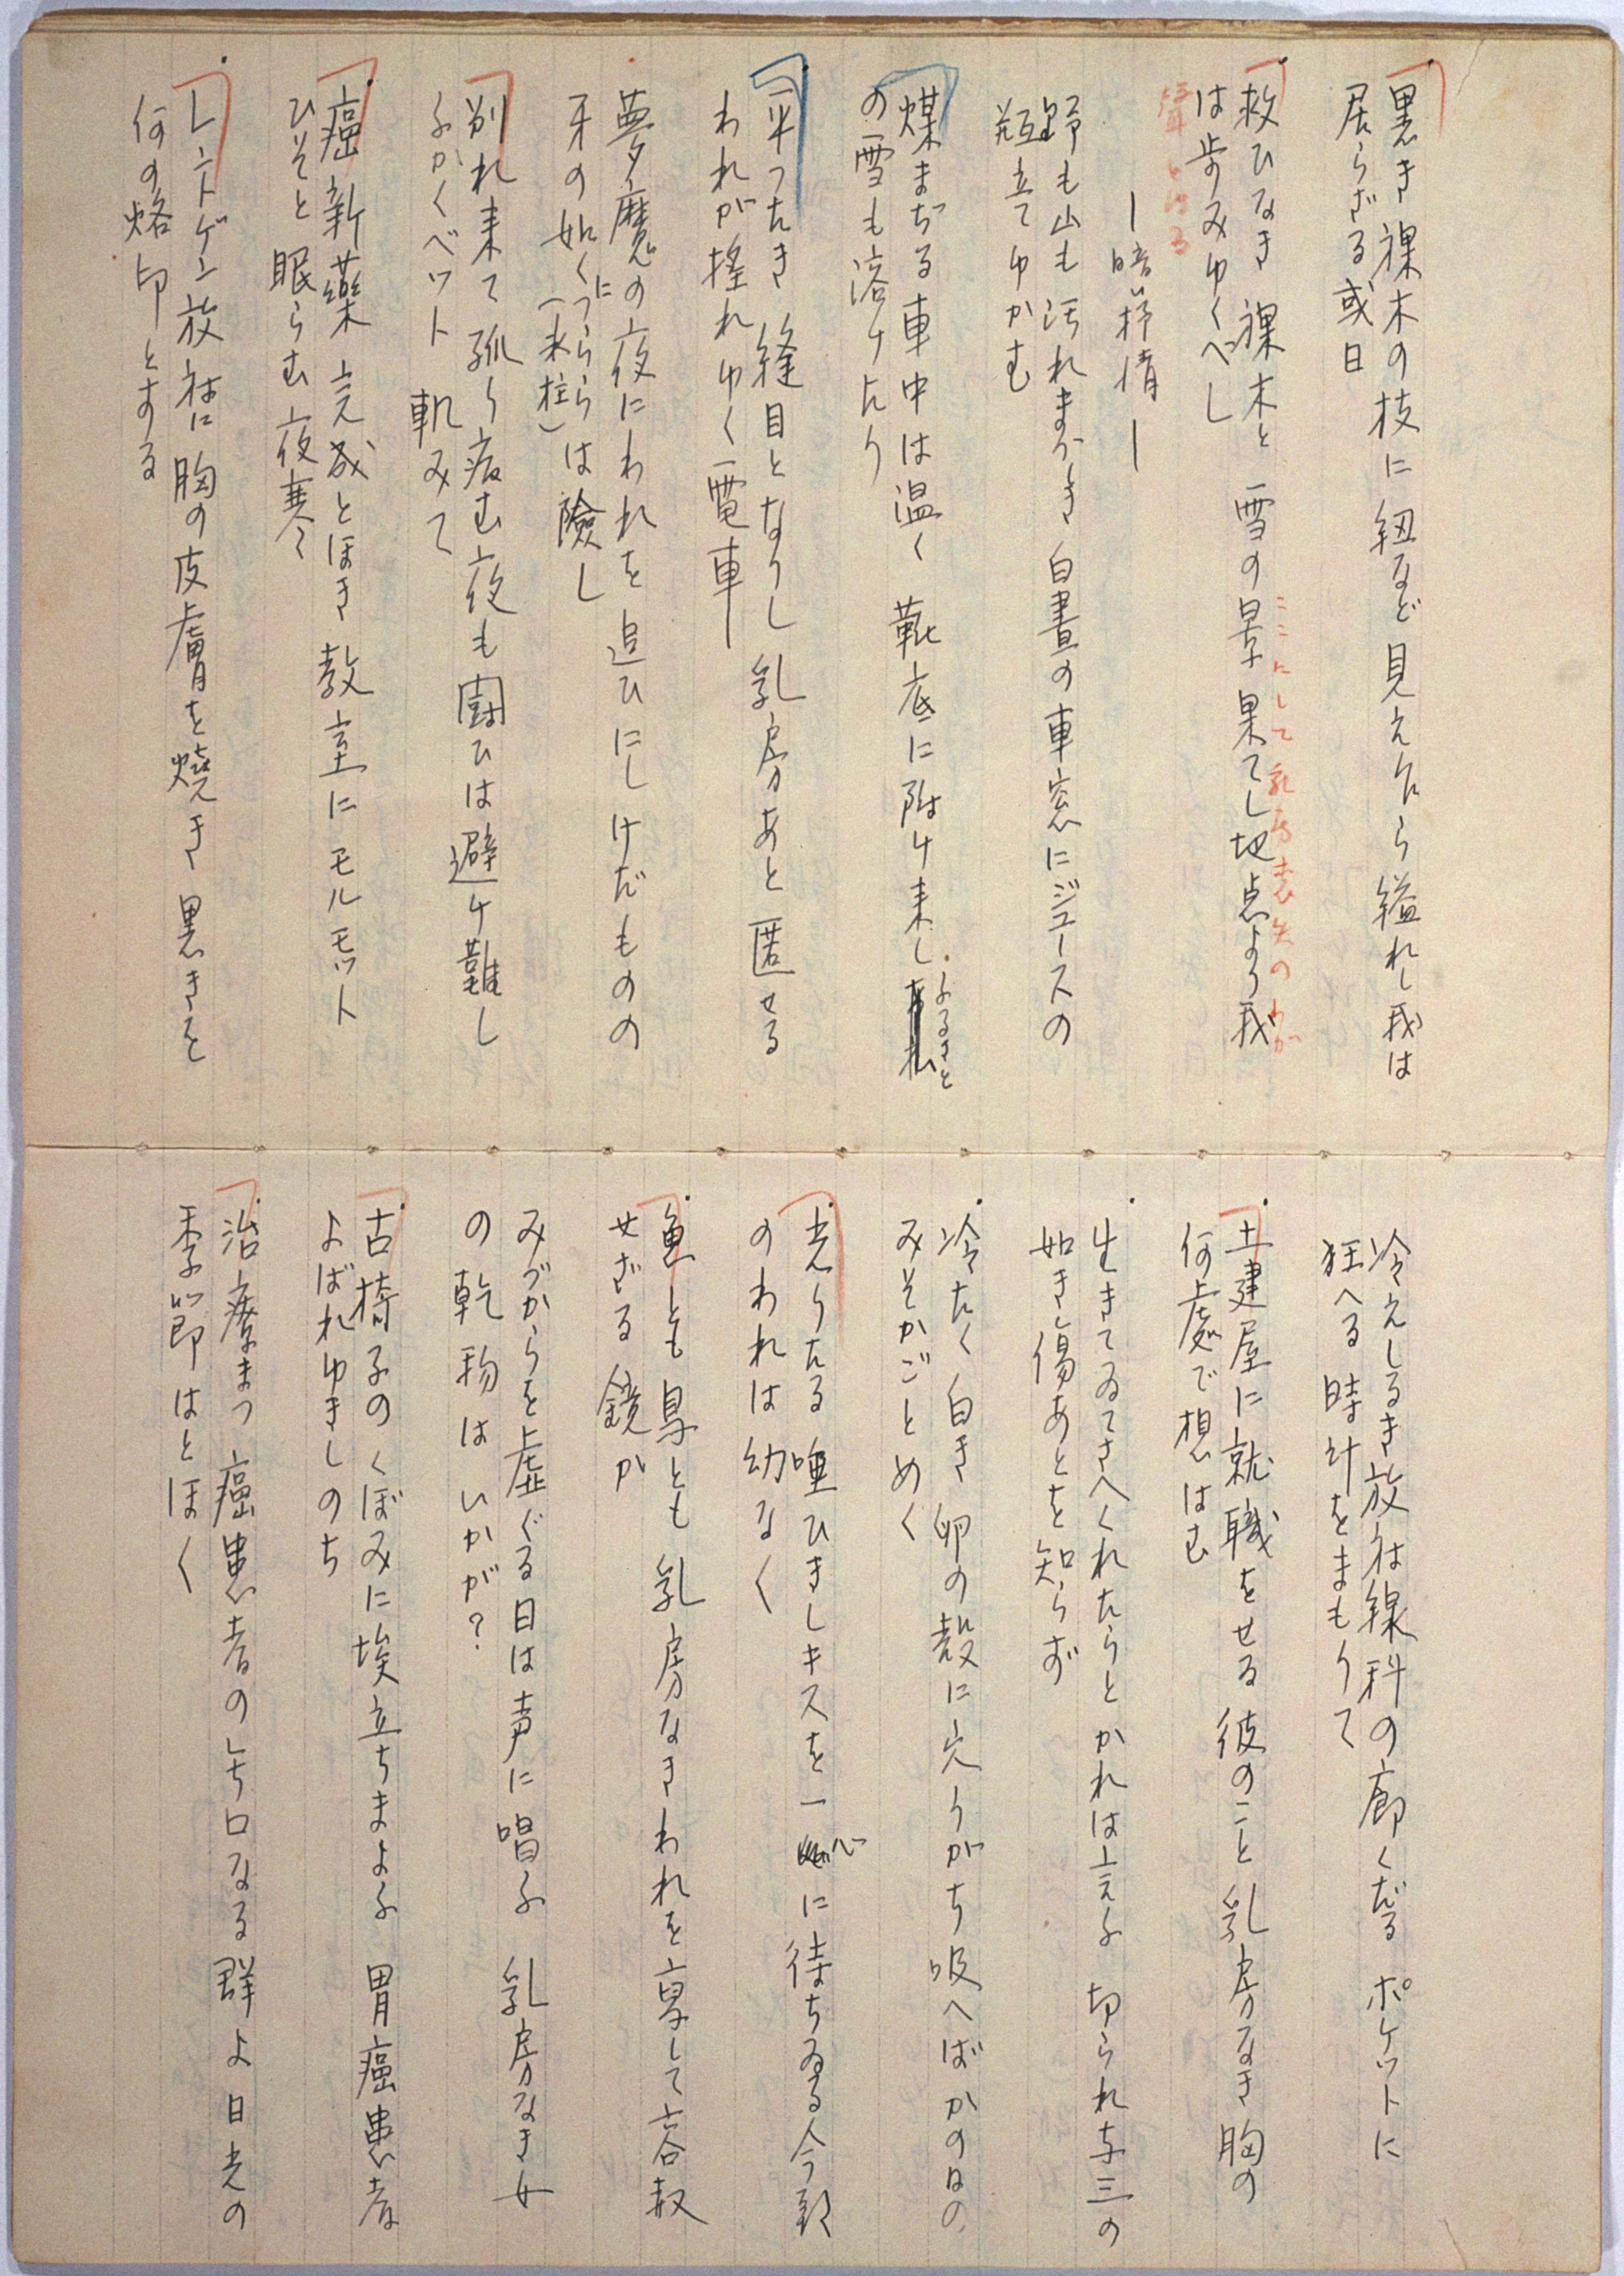 黒き裸木の枝に 紐など見えたら縊れし我は
居らざる或日
救ひなき 裸木と 雪の景 果てし地点より我
ここにして乳房喪失のわが
は歩みゆくべし
聲
―暗い抒情―
野も山も 汚れまぶしき 白晝の車窓にジュースの
瓶立てゆかむ
煤まぢる車中は温く 靴底に附け来し
ふるさと
の雪も溶けたり
平つたき 縫目となりし 乳房あと 匿せる
われが搖れゆく電車
夢魔の夜にわれを 追ひにしけだものの
牙の如くにつららは險し
(氷柱)
別れ来て 孤り病む夜も 闘ひは 避け難し
ふかくベット 軋みて
癌新藥 完成とほき 教室に モルモット
ひそと 眠らむ 夜寒く
レントゲン放射に 胸の皮膚を燒き 黒きを
何の烙印とする
冷えしるき 放射線科の廊くだる ポケットに
狂へる 時計をまもりて
土建屋に 就職をせる 彼のこと 乳房なき胸の
何處で想はむ
生きてゐてさへくれたらと かれは言ふ 切られ与三の
如き傷あとを知らず
冷たく 白き 卵の殻に 穴うがち 吸へば かの日の
みそかごとめく
光りたる 唾ひきしキスを 一心に 待ちゐる今朝
のわれは幼なく
魚とも 鳥とも 乳房なきわれを 冩して 容赦
せざる 鏡か
みづからを 虐ぐる日は 声に唱ふ 乳房なき女
の乾物は いかが?
古椅子の くぼみに埃立ちまよふ 胃癌患者
よばれゆきしのち
治療まつ 癌患者の レトロなる 群よ 日光の
季節はとほく